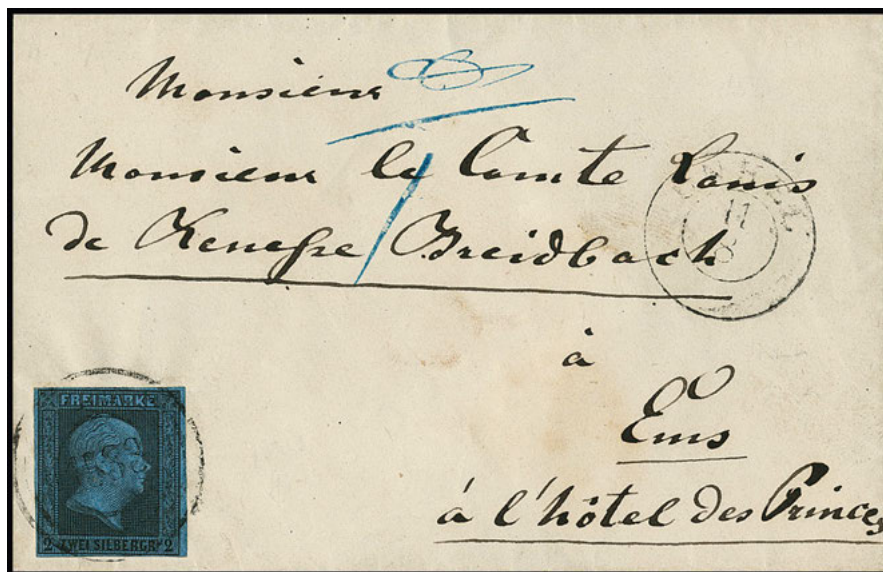 Monsieur
Monsieur le Comte Louis
de Renesse Breidbach
à
Ems
à l'hôtel des Princes
11
8
FREIMARKE
2 ZWEI SILBERGR. 2